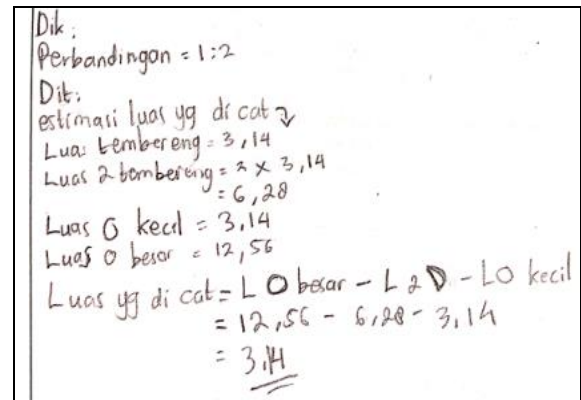 Dik :
Perbandingan = 1:2
Dit:
estimasi luas yg di cat ↴
Luas tembereng = 3,14
Luas 2 tembereng = 2 x 3,14
= 6,28
Luas O kecil = 3.14
Luas O besar = 12,56
Luas yg di cat = L O besar - L 2 D - LO kecil
= 12,56 - 6,28 - 3,14
= 3,14